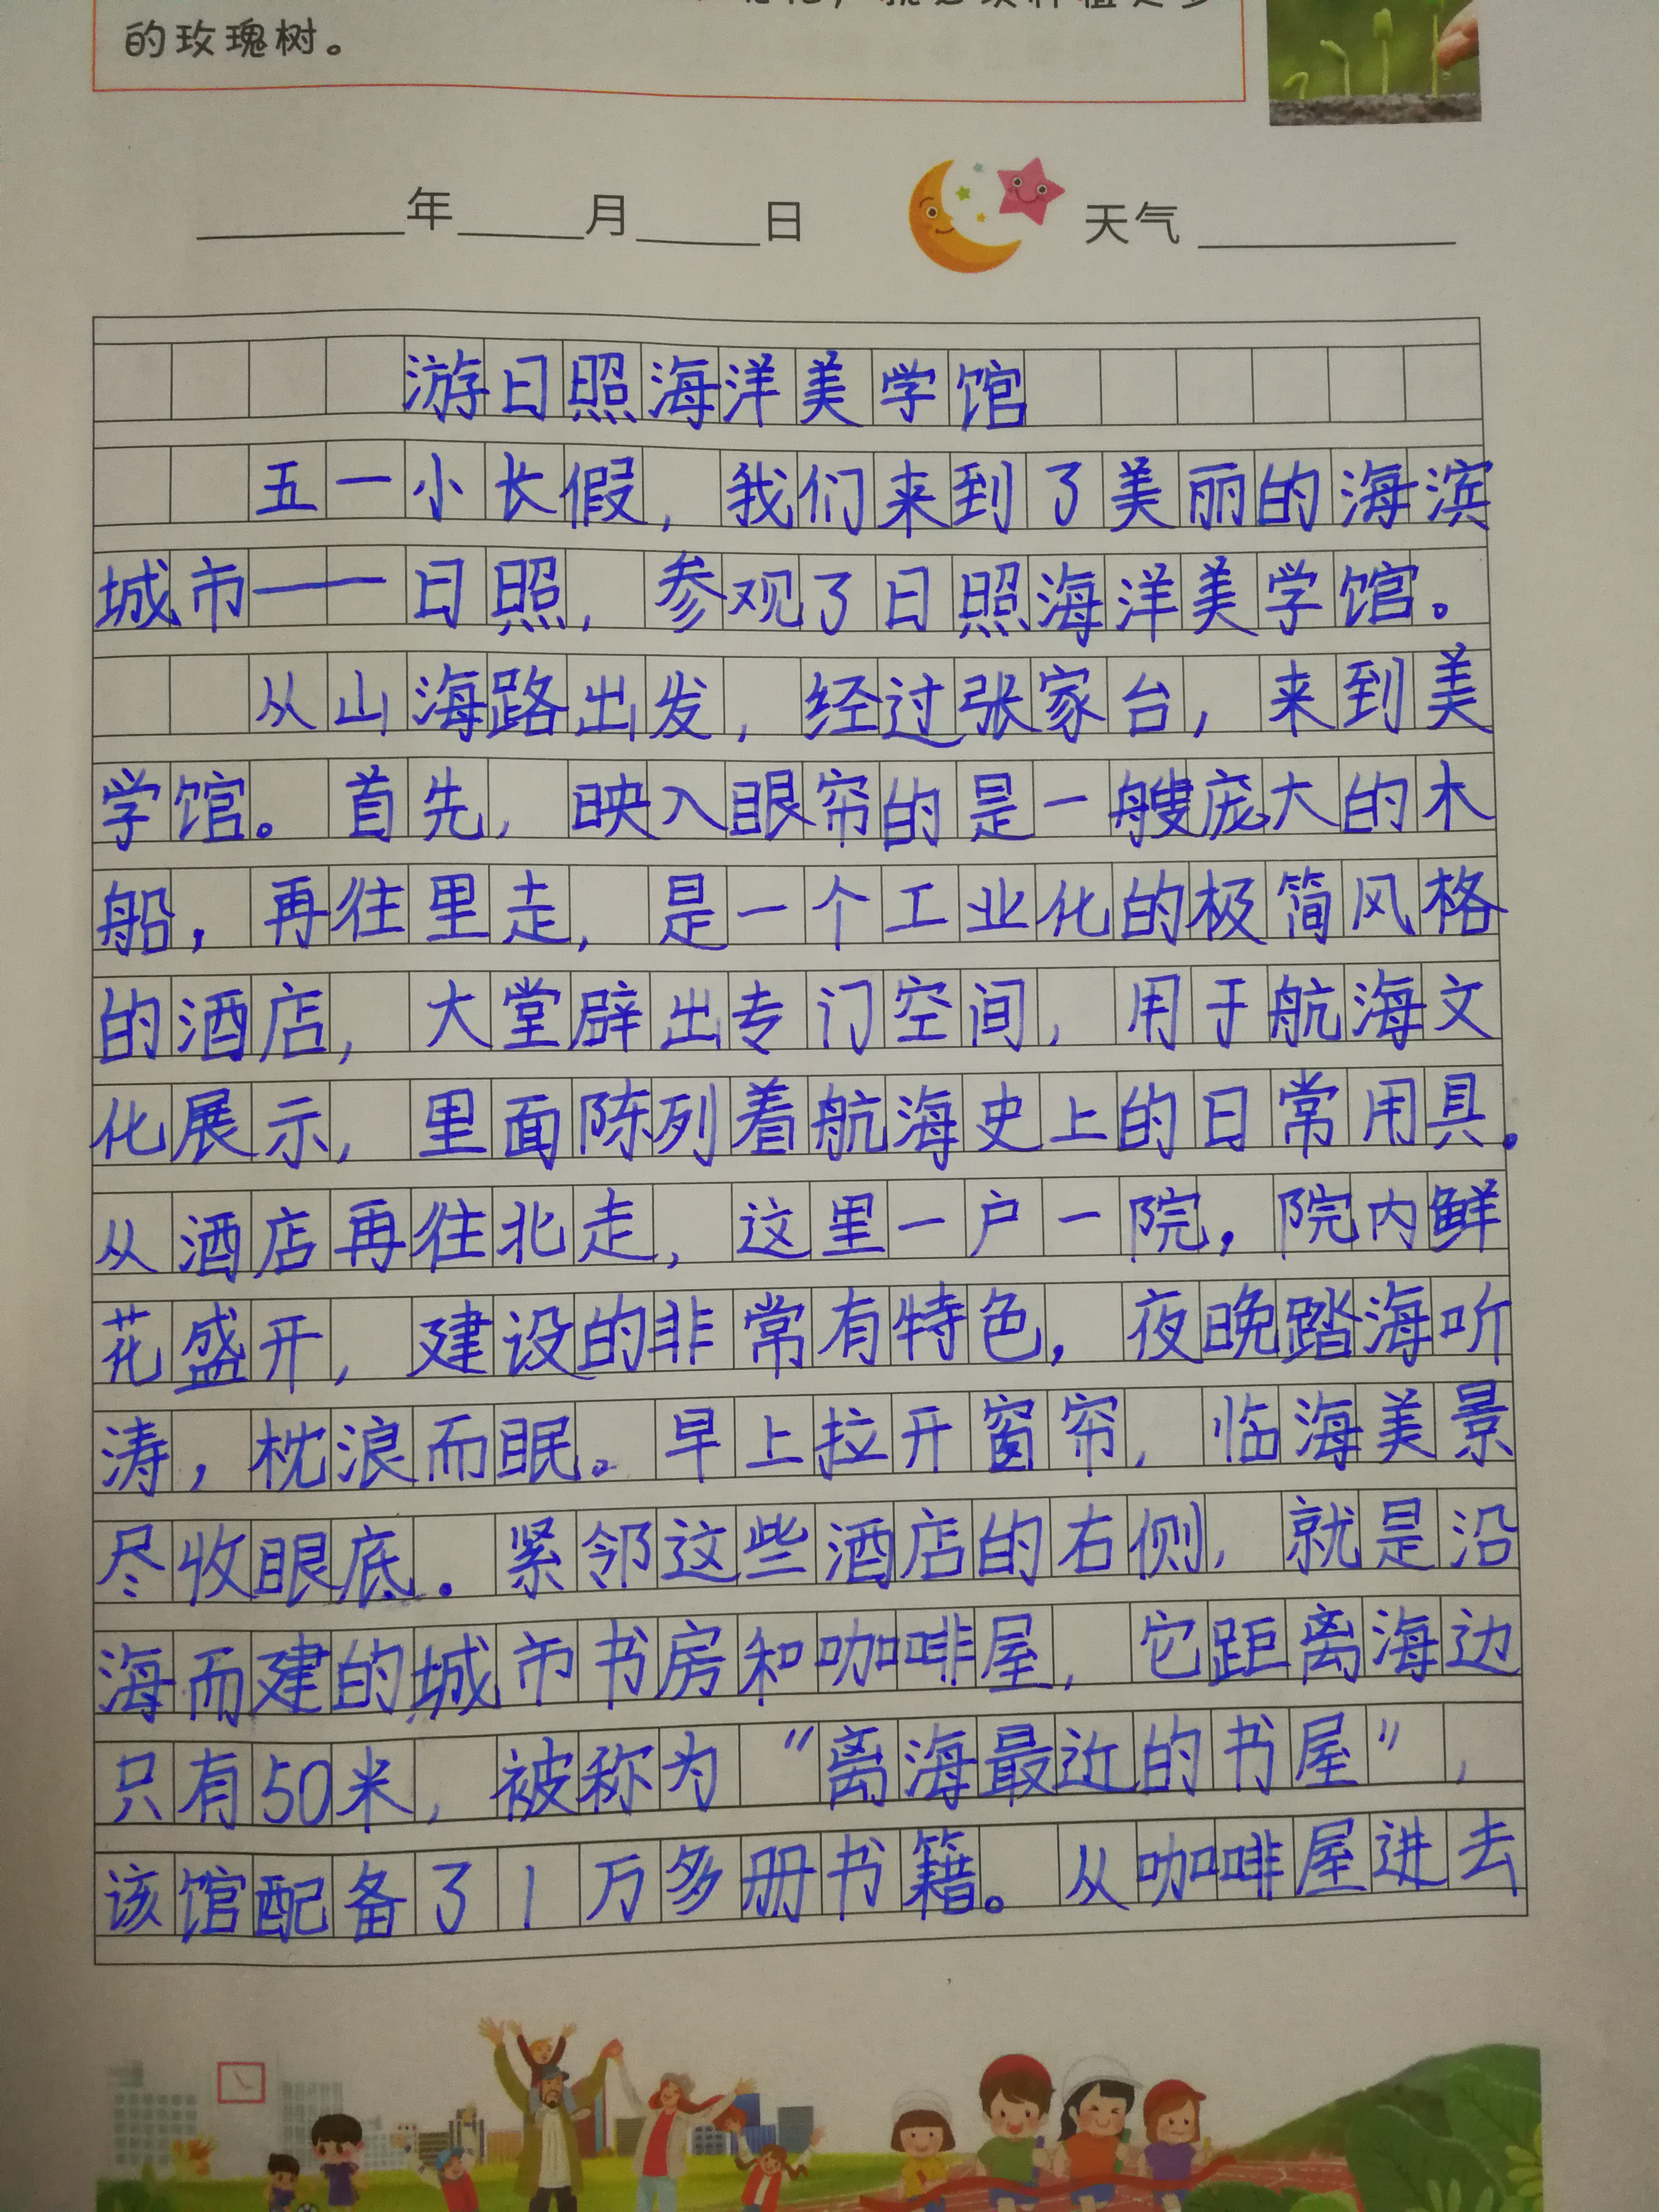 的玫瑰树。
年 月 日 天气
游日照海洋美学馆
五一小长假，我们来到了美丽的海滨
城市——日照，参观了日照海洋美学馆。
从山海路出发，经过张家台，来到美
学馆。首先，映入眼帘的是一艘庞大的木
船，再往里走，是一个工业化的极简风格
的酒店，大堂辟出专门空间，用于航海文
化展示，里面陈列着航海史上的日常用具。
从酒店再往北走，这里一户一院，院内鲜
花盛开，建设的非常有特色，夜晚踏海听
涛，枕浪而眠。早上拉开窗帘，临海美景
尽收眼底．紧邻这些酒店的右侧，就是沿
海而建的城市书房和咖啡屋，它距离海边
只有50米，被称为“离海最近的书屋”，
该馆配备了1万多册书籍。从咖啡屋进去